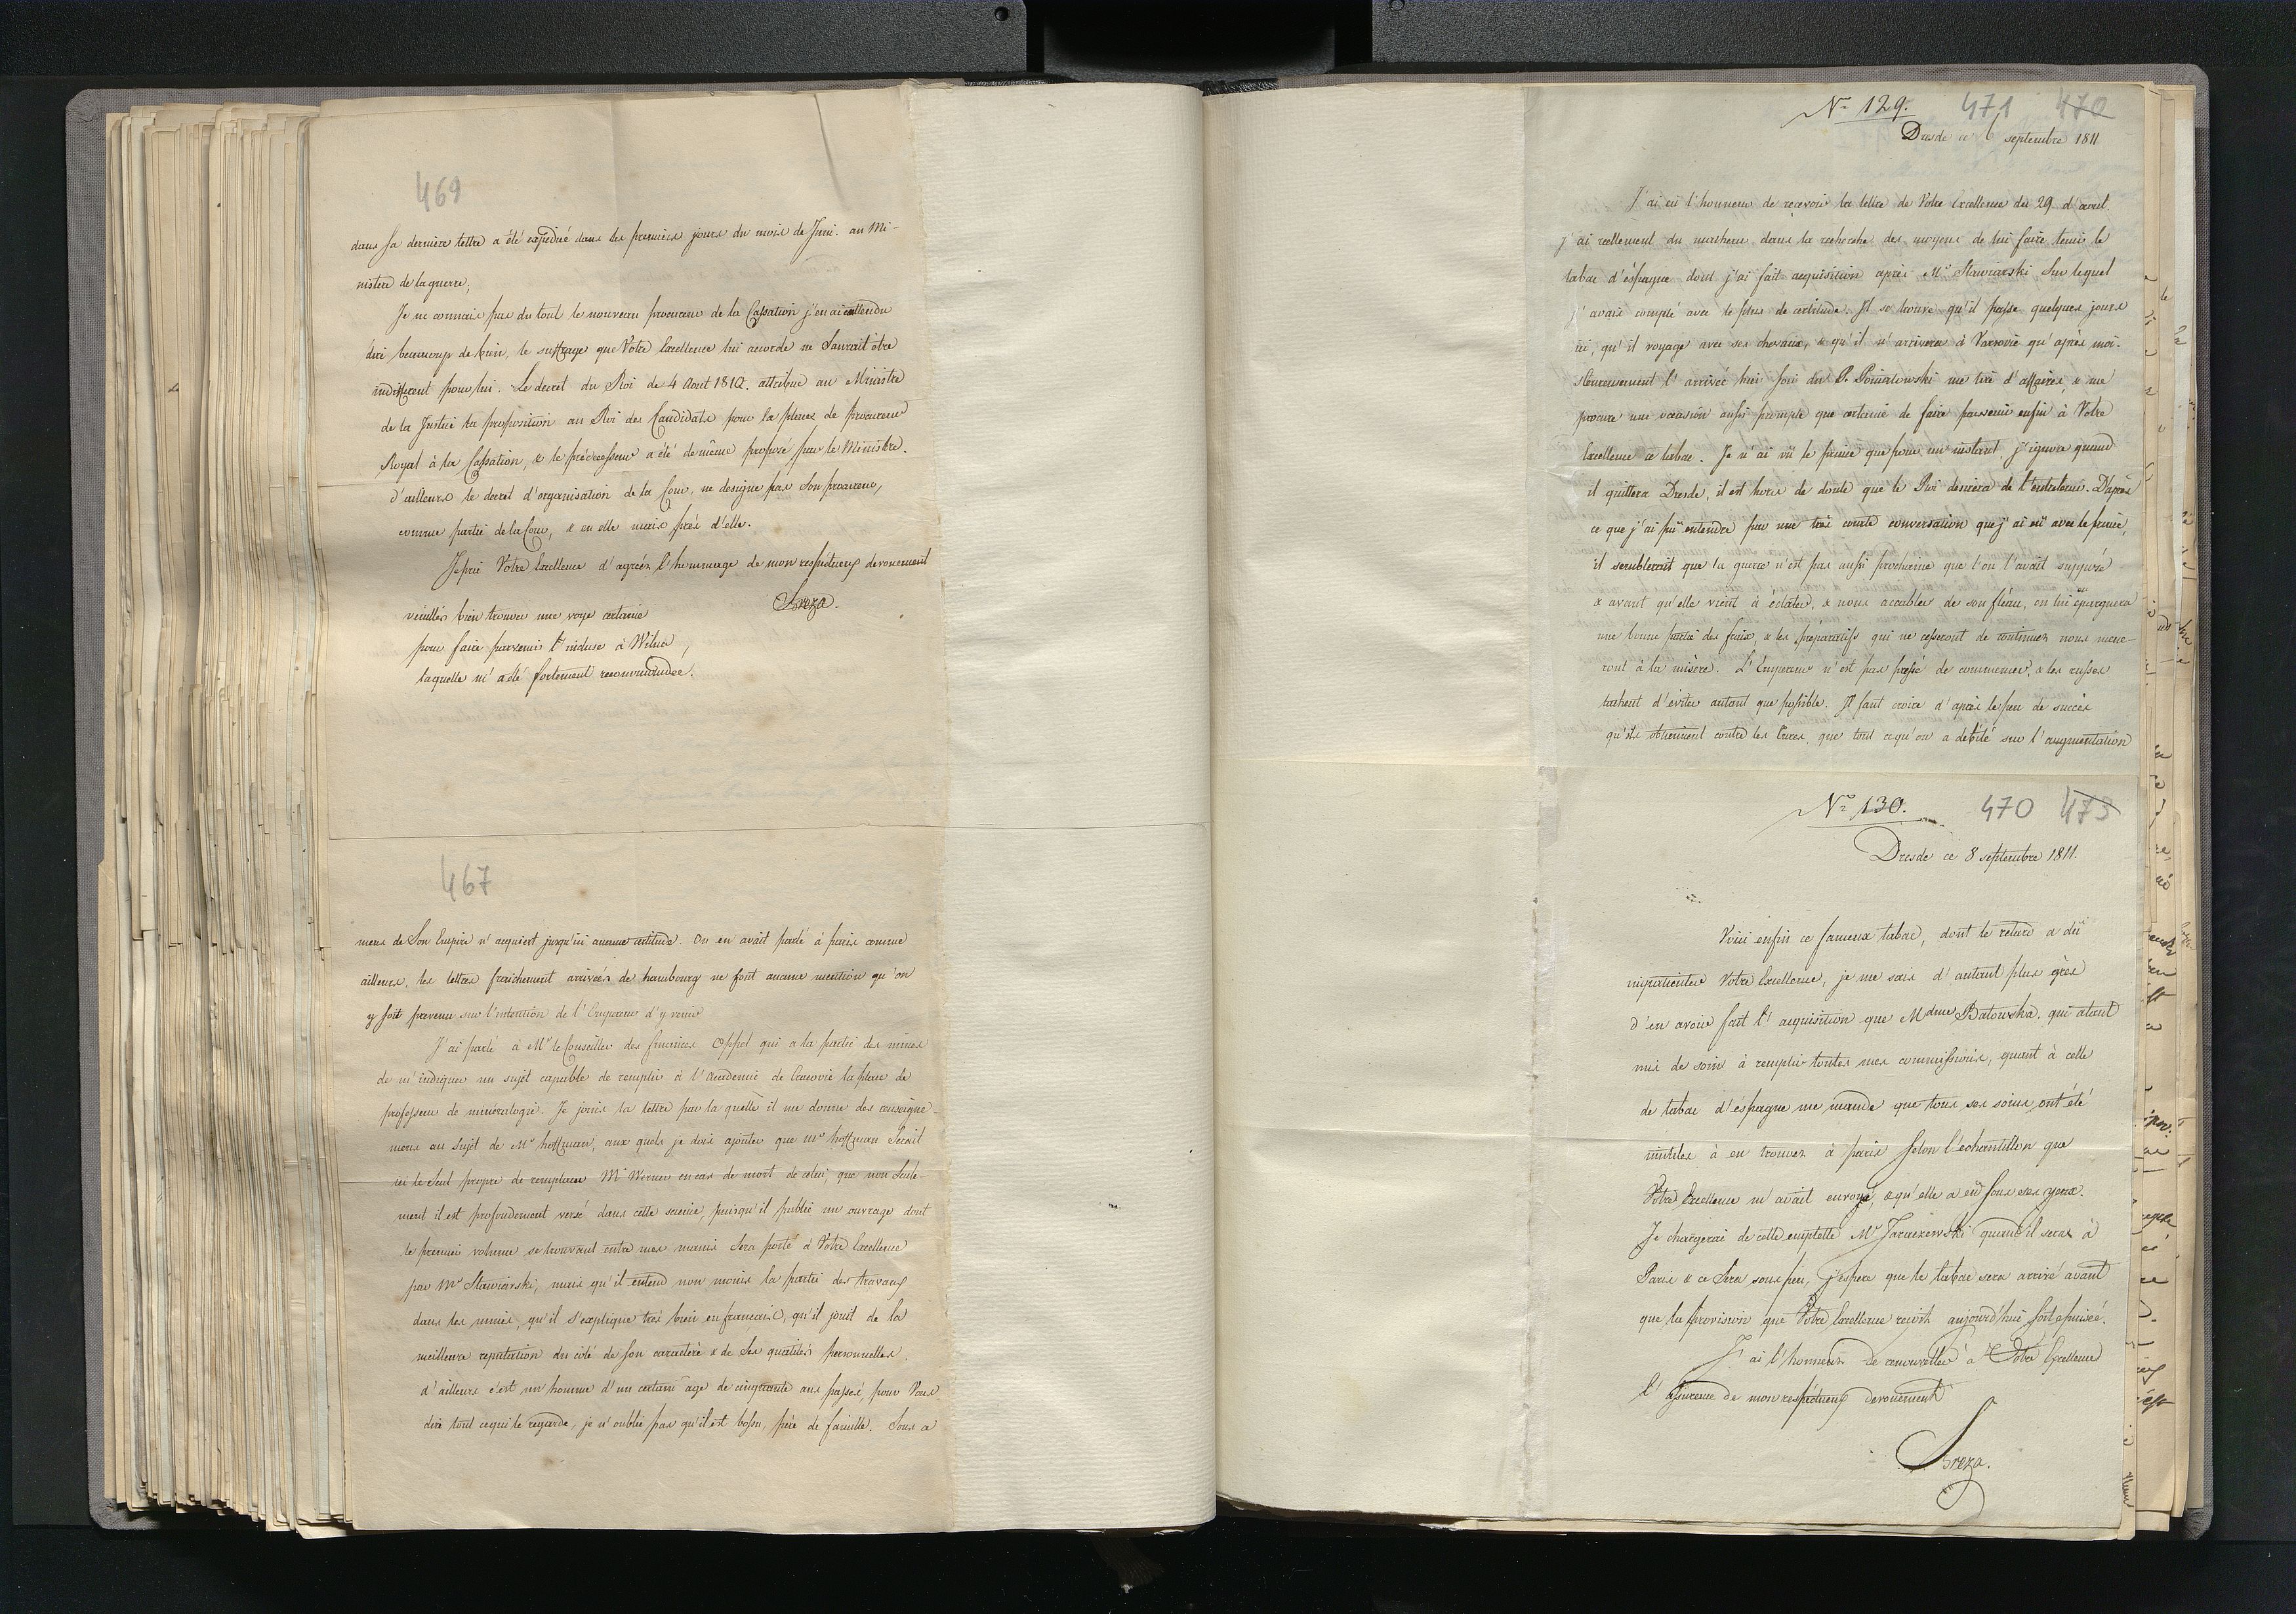 469
dans sa dernière lettre a été expediée dans les premiers jours du mois de Juin. au Mi-
nistere de la guerre;
Je ne connais pas du tout le nouveau procureur de la Cassation j'en ai entendu
dire beaucoup de bien, le suffrage que Votre Excellence lui accorde ne saurait être
indifferent pour lui. Le decret du Roi de 4 Aout 1810. attribue au Ministre
de la Justice la proposition au Roi des Candidats pour la place de procureur
Royal à la Cassation, & le prédecesseur a été de même proposé par le Ministre.
d'ailleurs le decret d'organisation de la Cour, ne designe pas son procureur,
comme partie de la Cour, & en elle mais près d'elle.
Je prie Votre Excellence d'agréer l'hommage de mon respectueux devouement
Breza.
veuillés bien trouver une voye certaine
pour faire parvenir l'incluse à Wilna,
laquelle m'a été fortement recommandée.
467
mens de Son Empire n'acquiert jusqu'ici aucune certitude. On en avait parlé à paris comme
ailleurs, les lettres fraichement arrivées de hambourg ne font aucune mention qu'on
y soit prevenu sur l'intention de l'Empereur d'y venir
J'ai parlé à Mr le Conseiller des finances Oppel qui a la partie des mines
de m'indiquer un sujet capable de remplir à l'Academie de Cracovie la place de
professeur de mineralogie. Je joins la lettre par laquelle il me donne des renseigne-
mens au sujet de Mr hoffman, aux quels je dois ajouter que Mr hoffman serait
ici le seul propre de remplacer Mr Werner en cas de mort de celui, que non seule-
ment il est profondement versé dans cette science, puisqu'il publie un ouvrage dont
le premier volume se trouvant entre mes mains sera porté à Votre Excellence
par Mr Stawiarski, mais qu'il entend non moins la partie des travaux
dans les mines, qu'il s'explique très bien en francais, qu'il jouit de la
meilleure reputation du coté de son caractère & de ses qualités personnelles.
d'ailleurs c'est un homme d'un certain age de cinquante ans passés, pour Vous
dire tout ce qui le regarde, je n'oublie pas qu'il est bossu, père de famille. Sous ce
No 129. 471 470
Dresde ce 6 septembre 1811
J'ai eü l'honneur de recevoir la lettre de Votre Excellence du 29 d'aout.
j'ai reellement du malheur dans la recherche des moyens de lui faire tenir le
tabac d'éspagne dont j'ai fait acquisition après Mr Stawiarski sur lequel
j'avais compté avec le plus de certitude. Il se trouve qu'il passe quelques jours
ici, qu'il voyage avec ses chevaux, & qu'il n'arrivera à Varsovie qu'après moi.
Heureusement l'arrivée hier soir du P. Poniatowski me tire d'affaires & me
procure une occasion aussi prompte que certaine de faire parvenir enfin à Votre
Excellence ce tabac. Je n'ai vü le prince que pour un instant, j'ignore quand
il quittera Dresde, il est hors de doute que le Roi desirera de l'entretenir. D'après
ce que j'ai pü entendre par une très courte conversation que j'ai eü avec le prince,
il semblerait que la guerre n'est pas aussi prochaine que l'on l'avait supposé
& avant qu'elle vient à éclater, & nous accabler de son fléau, on lui épargnera
une bonne partie des fraix, & les préparatifs qui ne cesseront de continuer nous mene-
ront à la misère. L'Empereur n'est pas pressé de commencer, & les russes
tachent d'eviter autant que possible. Il faut croire d'après le peu de succès
qu'ils obtiennent contre les turcs, que tout ce qu'on a debité sur l'augmentation
No 130. 470 473
Dresde ce 8 septembre 1811.
Voici enfin ce fameux tabac, dont le retard a dü
impatienter Votre Excellence, je me sais d'autant plus grès
d'en avoir fait l'acquisition que Mdme Batowska. qui a tant
mis de soins à remplir toutes mes commissions, quant à celle
de tabac d'éspagne me mande que tous ses soins ont été
inutiles à en trouver à paris selon l'echantillon que
Votre Excellence m'avait envoyé, & qu'elle a eü sous ses yeux.
Je chargerai de cette emplette Mr Jaraczewski quand il sera à
Paris & ce sera sous peu, j'espere que le tabac sera arrivé avant
que la provision que Votre Excellence reçoit aujourd'hui soit epuisée.
J'ai l'honneur de renouveller à Votre Excellence
l'assurence de mon respectueux devouement
Breza.